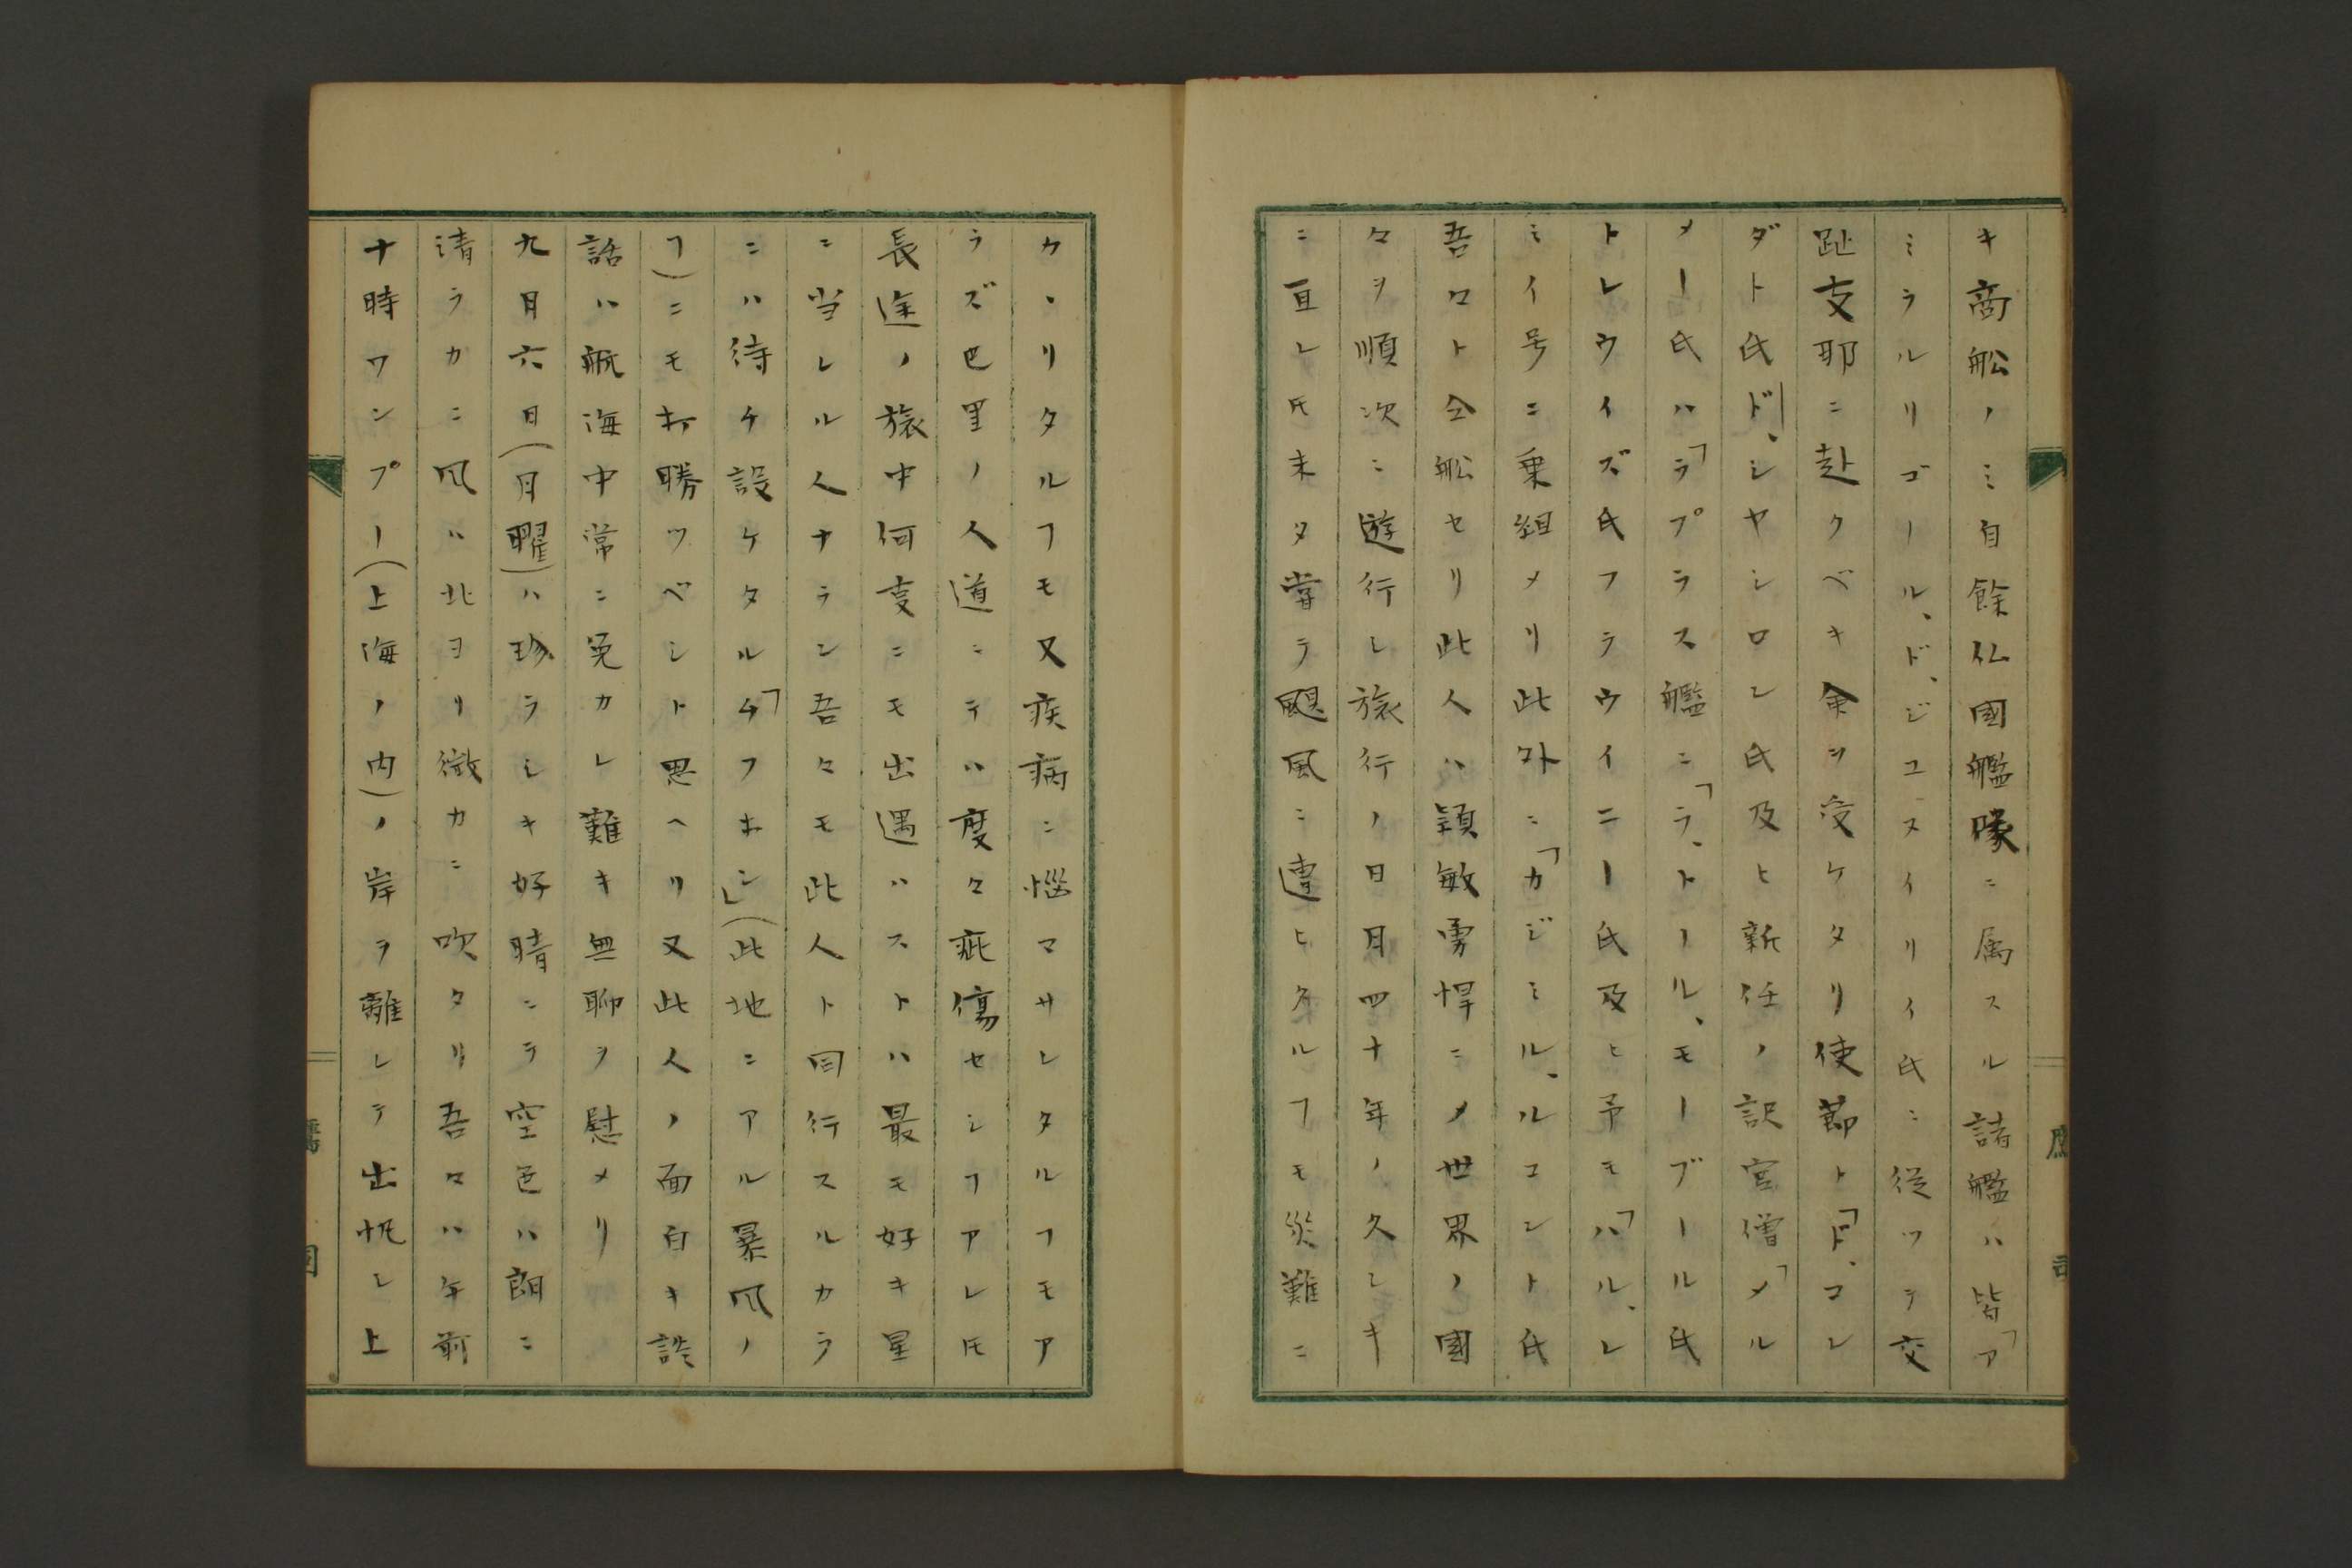 キ商舩ノミ自餘仏國艦隊ニ属スル諸艦ハ皆「ア
ミラルリゴール、ド、ジユヌイリイ氏ニ從ツテ交
趾支耶ニ赴クベキ命ヲ受ケタリ使節ト「ド、コレ
ダト氏ド、シヤシロン氏及ヒ新任ノ訳官僧「メル
メー氏ハ「ラプラス艦ニ「ラ、トール、モーブール氏
トレウイズ氏フラウイニー氏及ヒ予モ「ハル、レ
ミイ号ニ乗組メリ此外ニ「カジミル、ルコント氏
吾々ト仝舩セリ此人ハ頴敏勇悍ニメ世界ノ國
々ヲ順次ニ遊行シ旅行ノ日月四十年ノ久シキ
ニ亘レ𪜈未タ嘗テ颶風ニ遭ヒタルヿモ災難ニ
カヽリタルヿモ又疾病ニ惱マサレタルヿモア
ラズ巴里ノ人道ニテハ度々疵傷セシヿアレ𪜈
長途ノ旅中何事ニモ出遇ハストハ最モ好キ星
ニ当レル人ナラン吾々モ此人ト同行スルカラ
ニハ待チ設ケタル「チフホン」(此地ニアル暴風ノ
ヿ)ニモ打勝ツベシト思ヘリ又此人ノ面白キ談
話ハ航海中常ニ免カレ難キ無聊ヲ慰メリ
九月六日(月曜)ハ珍ラシキ好晴ニテ空色ハ朗ニ
清ラカニ風ハ北ヨリ微カニ吹タリ吾々ハ午前
十時ワンプー(上海ノ内)ノ岸ヲ離レテ出帆シ上